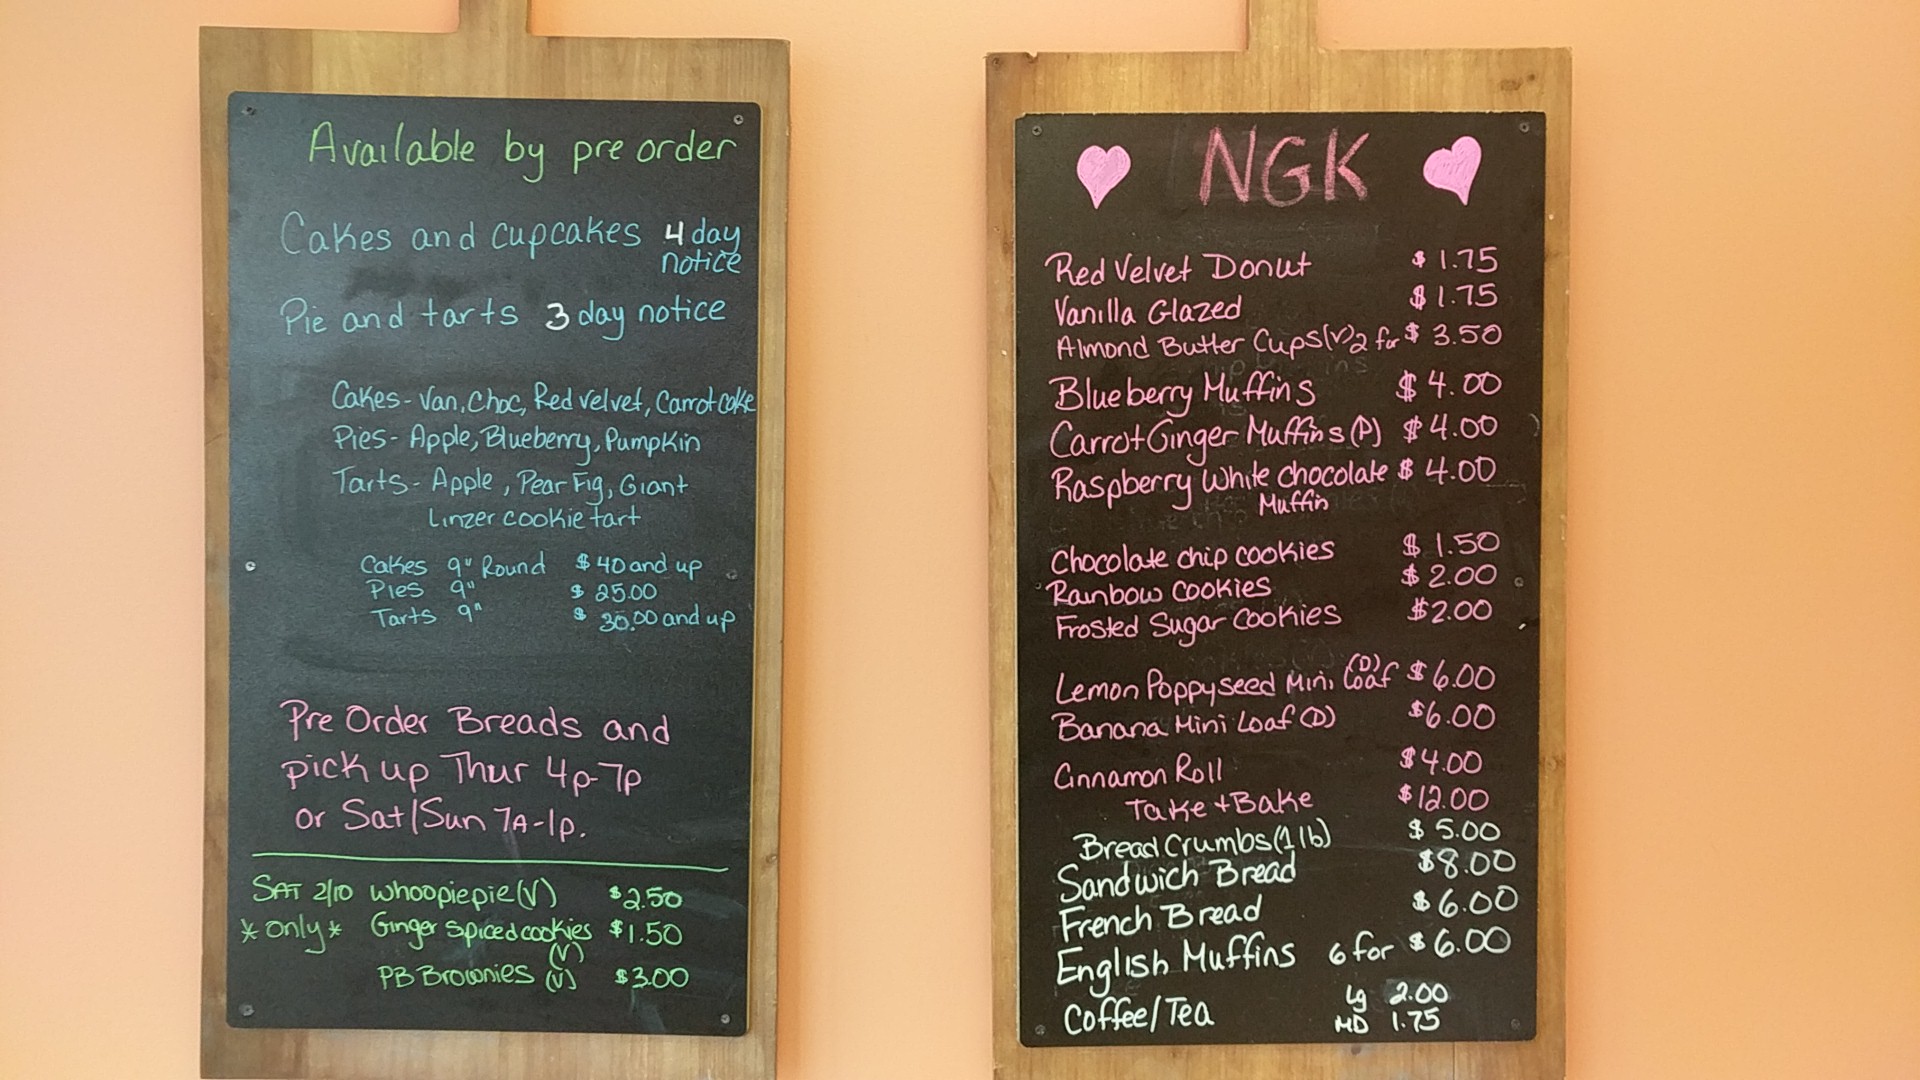 Available by pre order
Cakes and cupcakes 4 day
notice
Pie and tarts 3 day notice
Cakes - Van, Choc, Red velvet, Carrot cake
Pies - Apple, Blueberry, Pumpkin
Tarts - Apple, Pear Fig, Giant
Linzer cookie tart
Cakes 9" Round $ 40 and up
Pies 9" $ 25.00
Tarts 9" $ 30.00 and up
Pre Order Breads and
pick up Thur 4p-7p
or Sat/Sun 7A-1p.
SAT 2/10 whoopie pie (V) $2.50
*only* Ginger spiced cookies $1.50
(V)
PB Brownies (V) $3.00
NGK
Red Velvet Donut $ 1.75
Vanilla Glazed $ 1.75
Almond Butter Cups (V) 2 for $ 3.50
Blueberry Muffins $ 4.00
Carrot Ginger Muffins (D) $ 4.00
Raspberry White chocolate $ 4.00
Muffin
Chocolate chip cookies $ 1.50
Rainbow cookies $ 2.00
Frosted Sugar Cookies $2.00
Lemon Poppyseed Mini Loaf (D) $ 6.00
Banana Mini Loaf (D) $6.00
Cinnamon Roll $4.00
Take + Bake $12.00
Bread Crumbs (1 lb) $ 5.00
Sandwich Bread $8.00
French Bread $ 6.00
English Muffins 6 for $ 6.00
Coffee/Tea Lg 2.00
MD 1.75